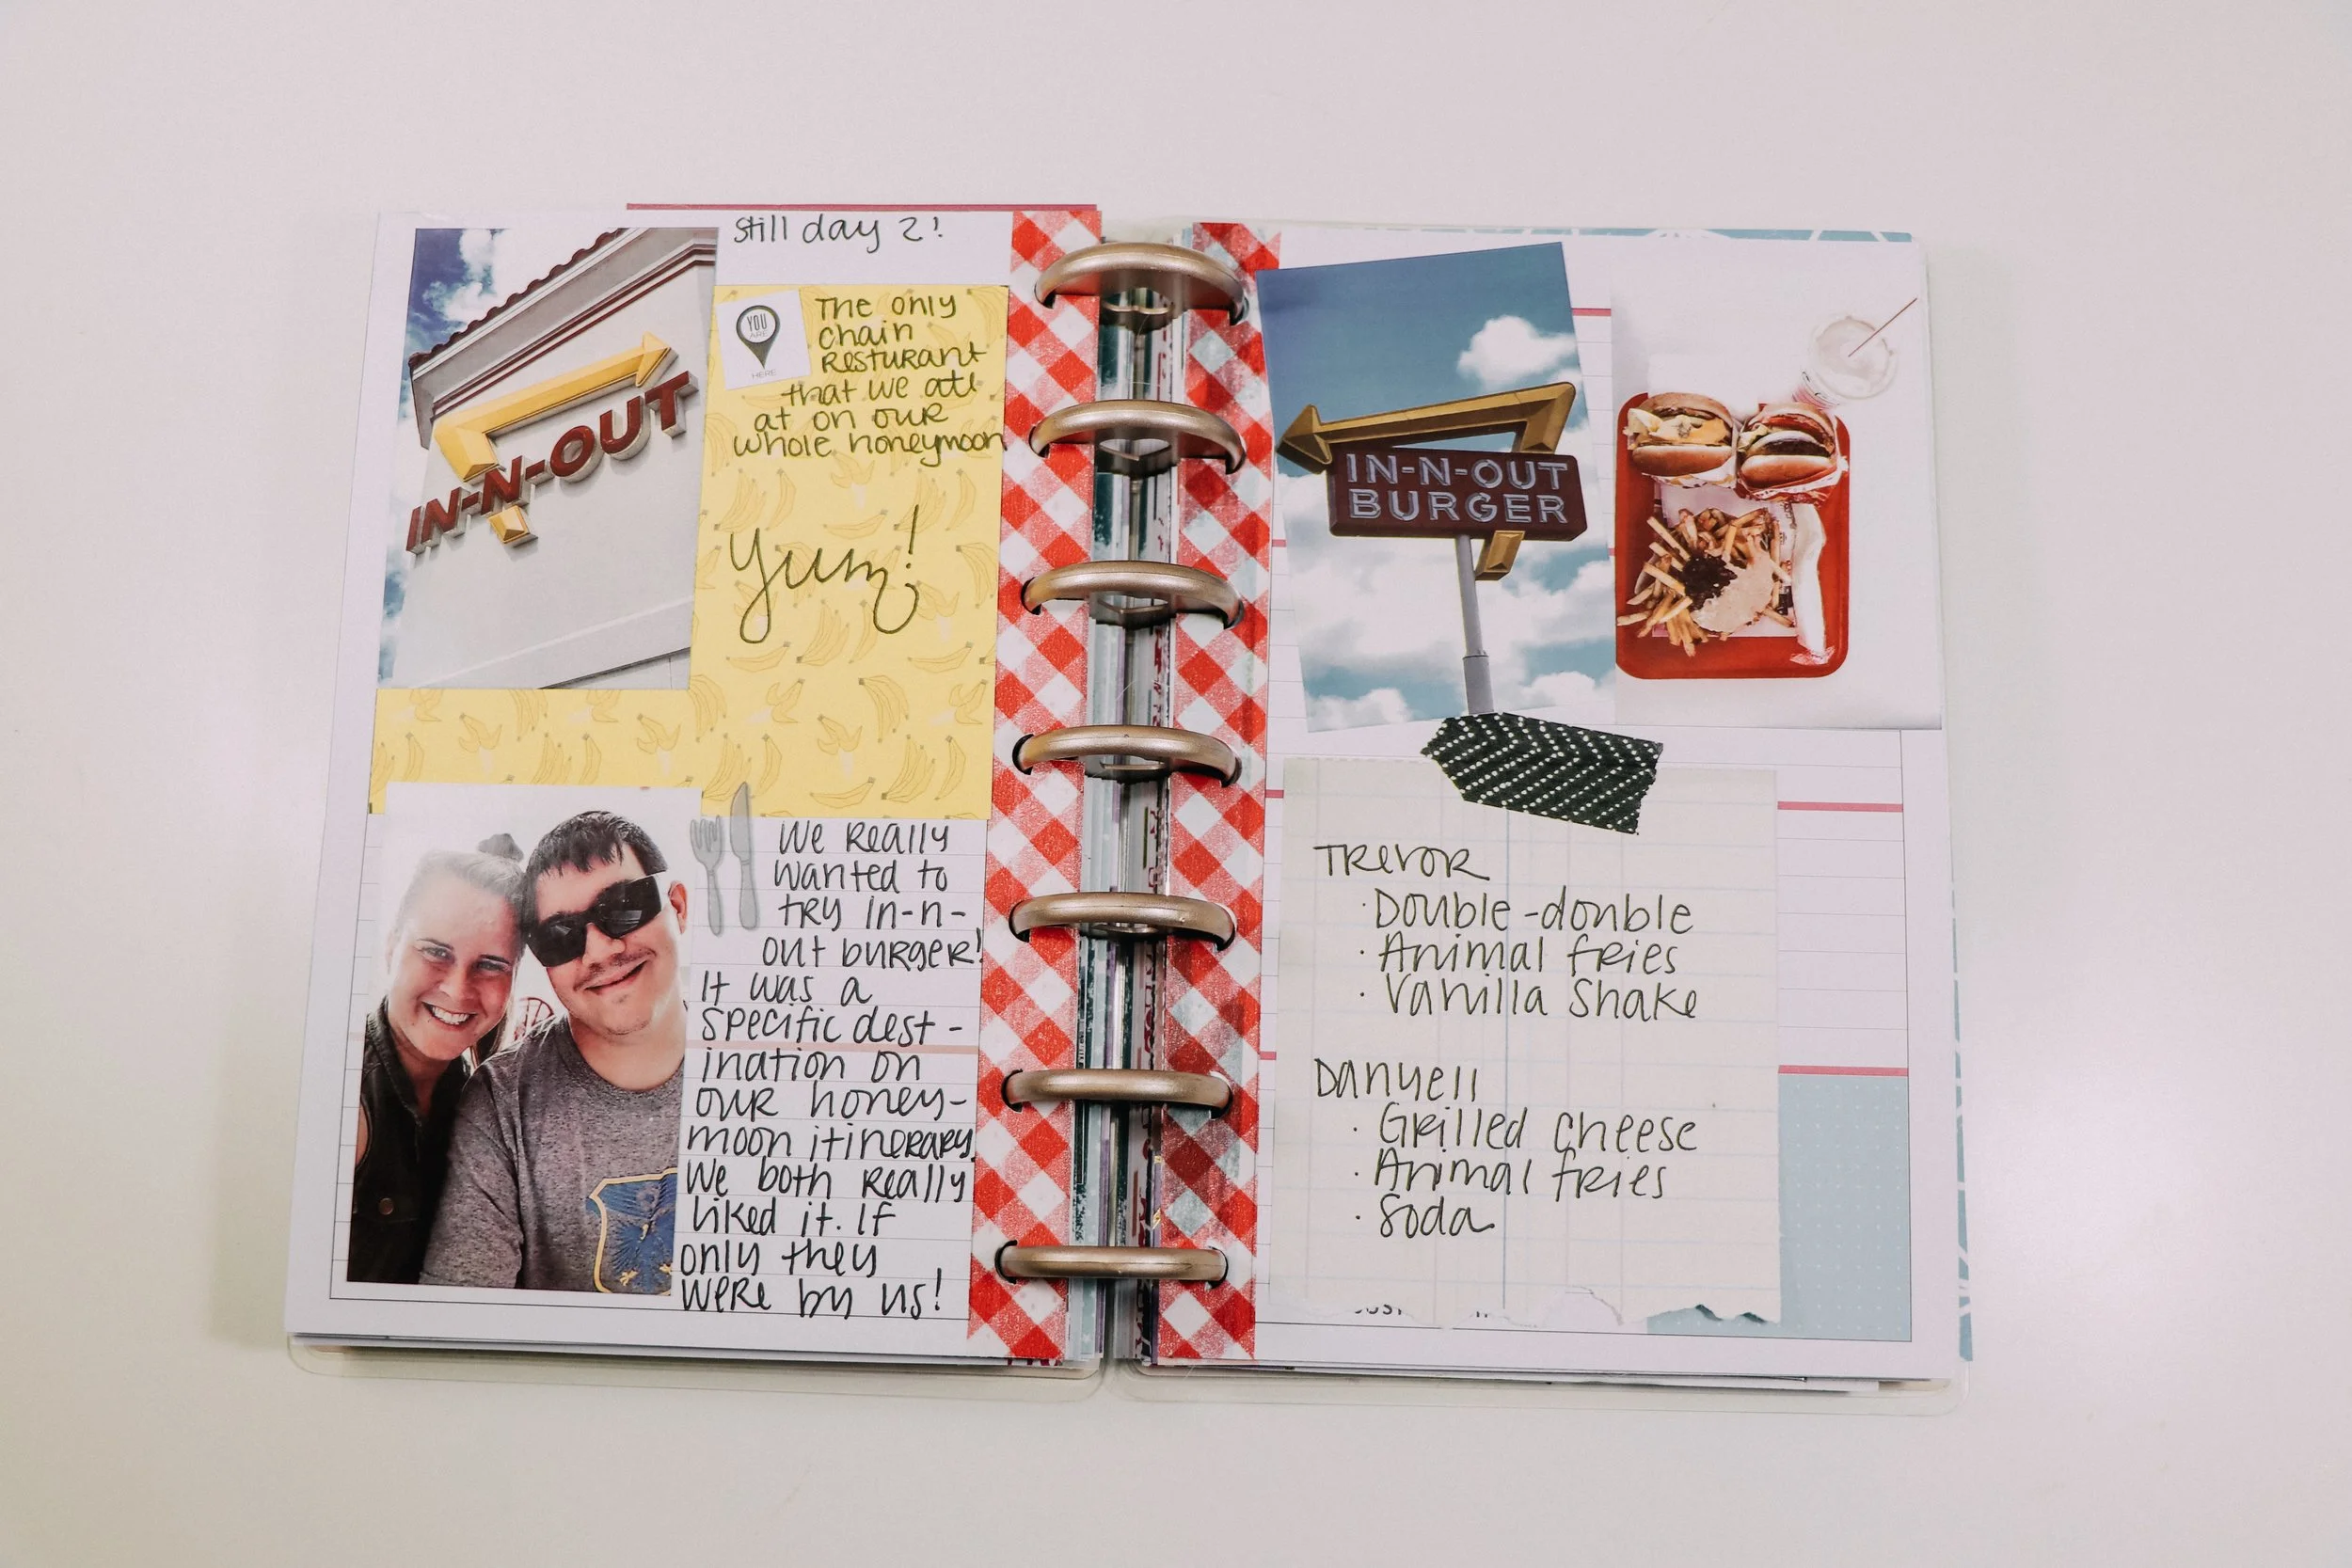 Still day 2!
IN-N-OUT
YOU
ARE
HERE
The only
chain
Resturant
that we ate
at on our
whole honeymoon
Yum!
We Really
wanted to
try In-n-
out burger!
It was a
specific dest-
ination on
our honey-
moon itinerary.
We both really
liked it. If
only they
were by us!
IN-N-OUT
BURGER
Trevor
· Double-double
· Animal fries
· Vanilla Shake
Danyell
· Grilled cheese
· Animal fries
· Soda